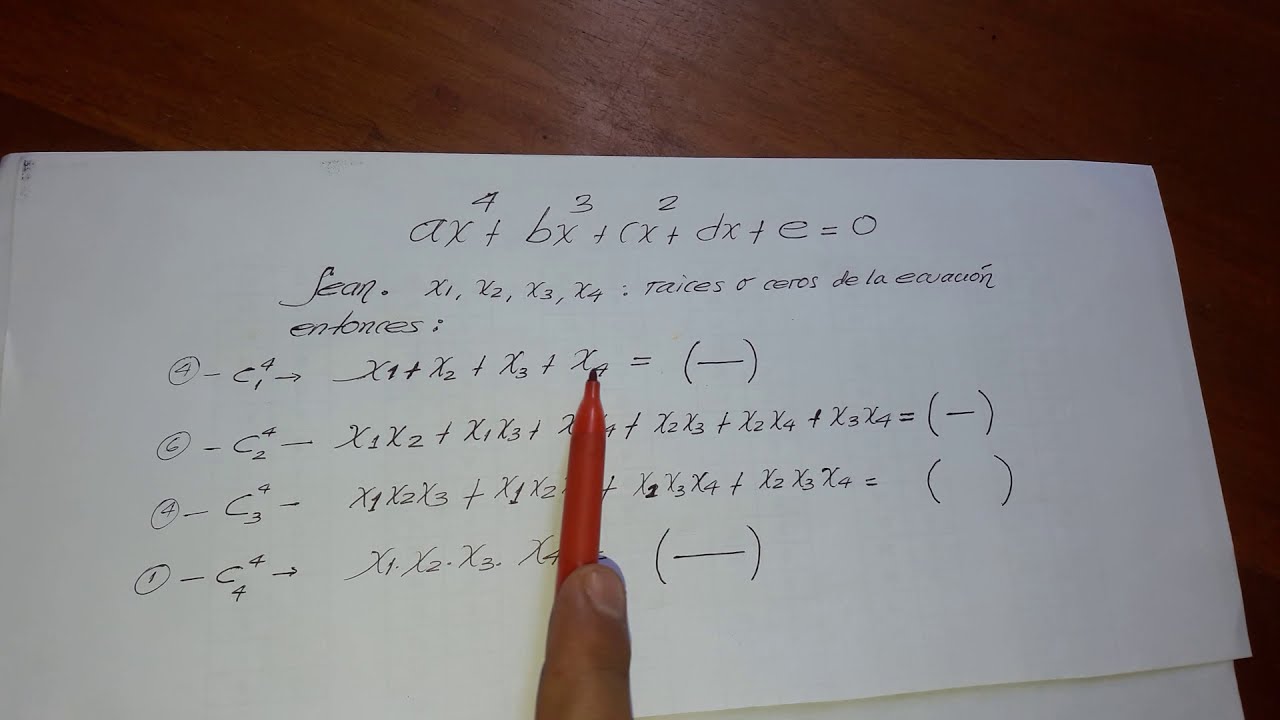 ax⁴ + bx³ + cx² + dx + e = 0
Sean. x₁, x₂, x₃, x₄ : raices o ceros de la ecuación
entonces :
④ – C₁⁴ → x₁ + x₂ + x₃ + x₄ = (—)
⑥ – C₂⁴ – x₁x₂ + x₁x₃ + x₄ + x₂x₃ + x₂x₄ + x₃x₄ = (—)
④ – C₃⁴ – x₁x₂x₃ + x₁x₂ + x₁x₃x₄ + x₂x₃x₄ = ( )
① – C₄⁴ → x₁.x₂.x₃. x₄ = (—)